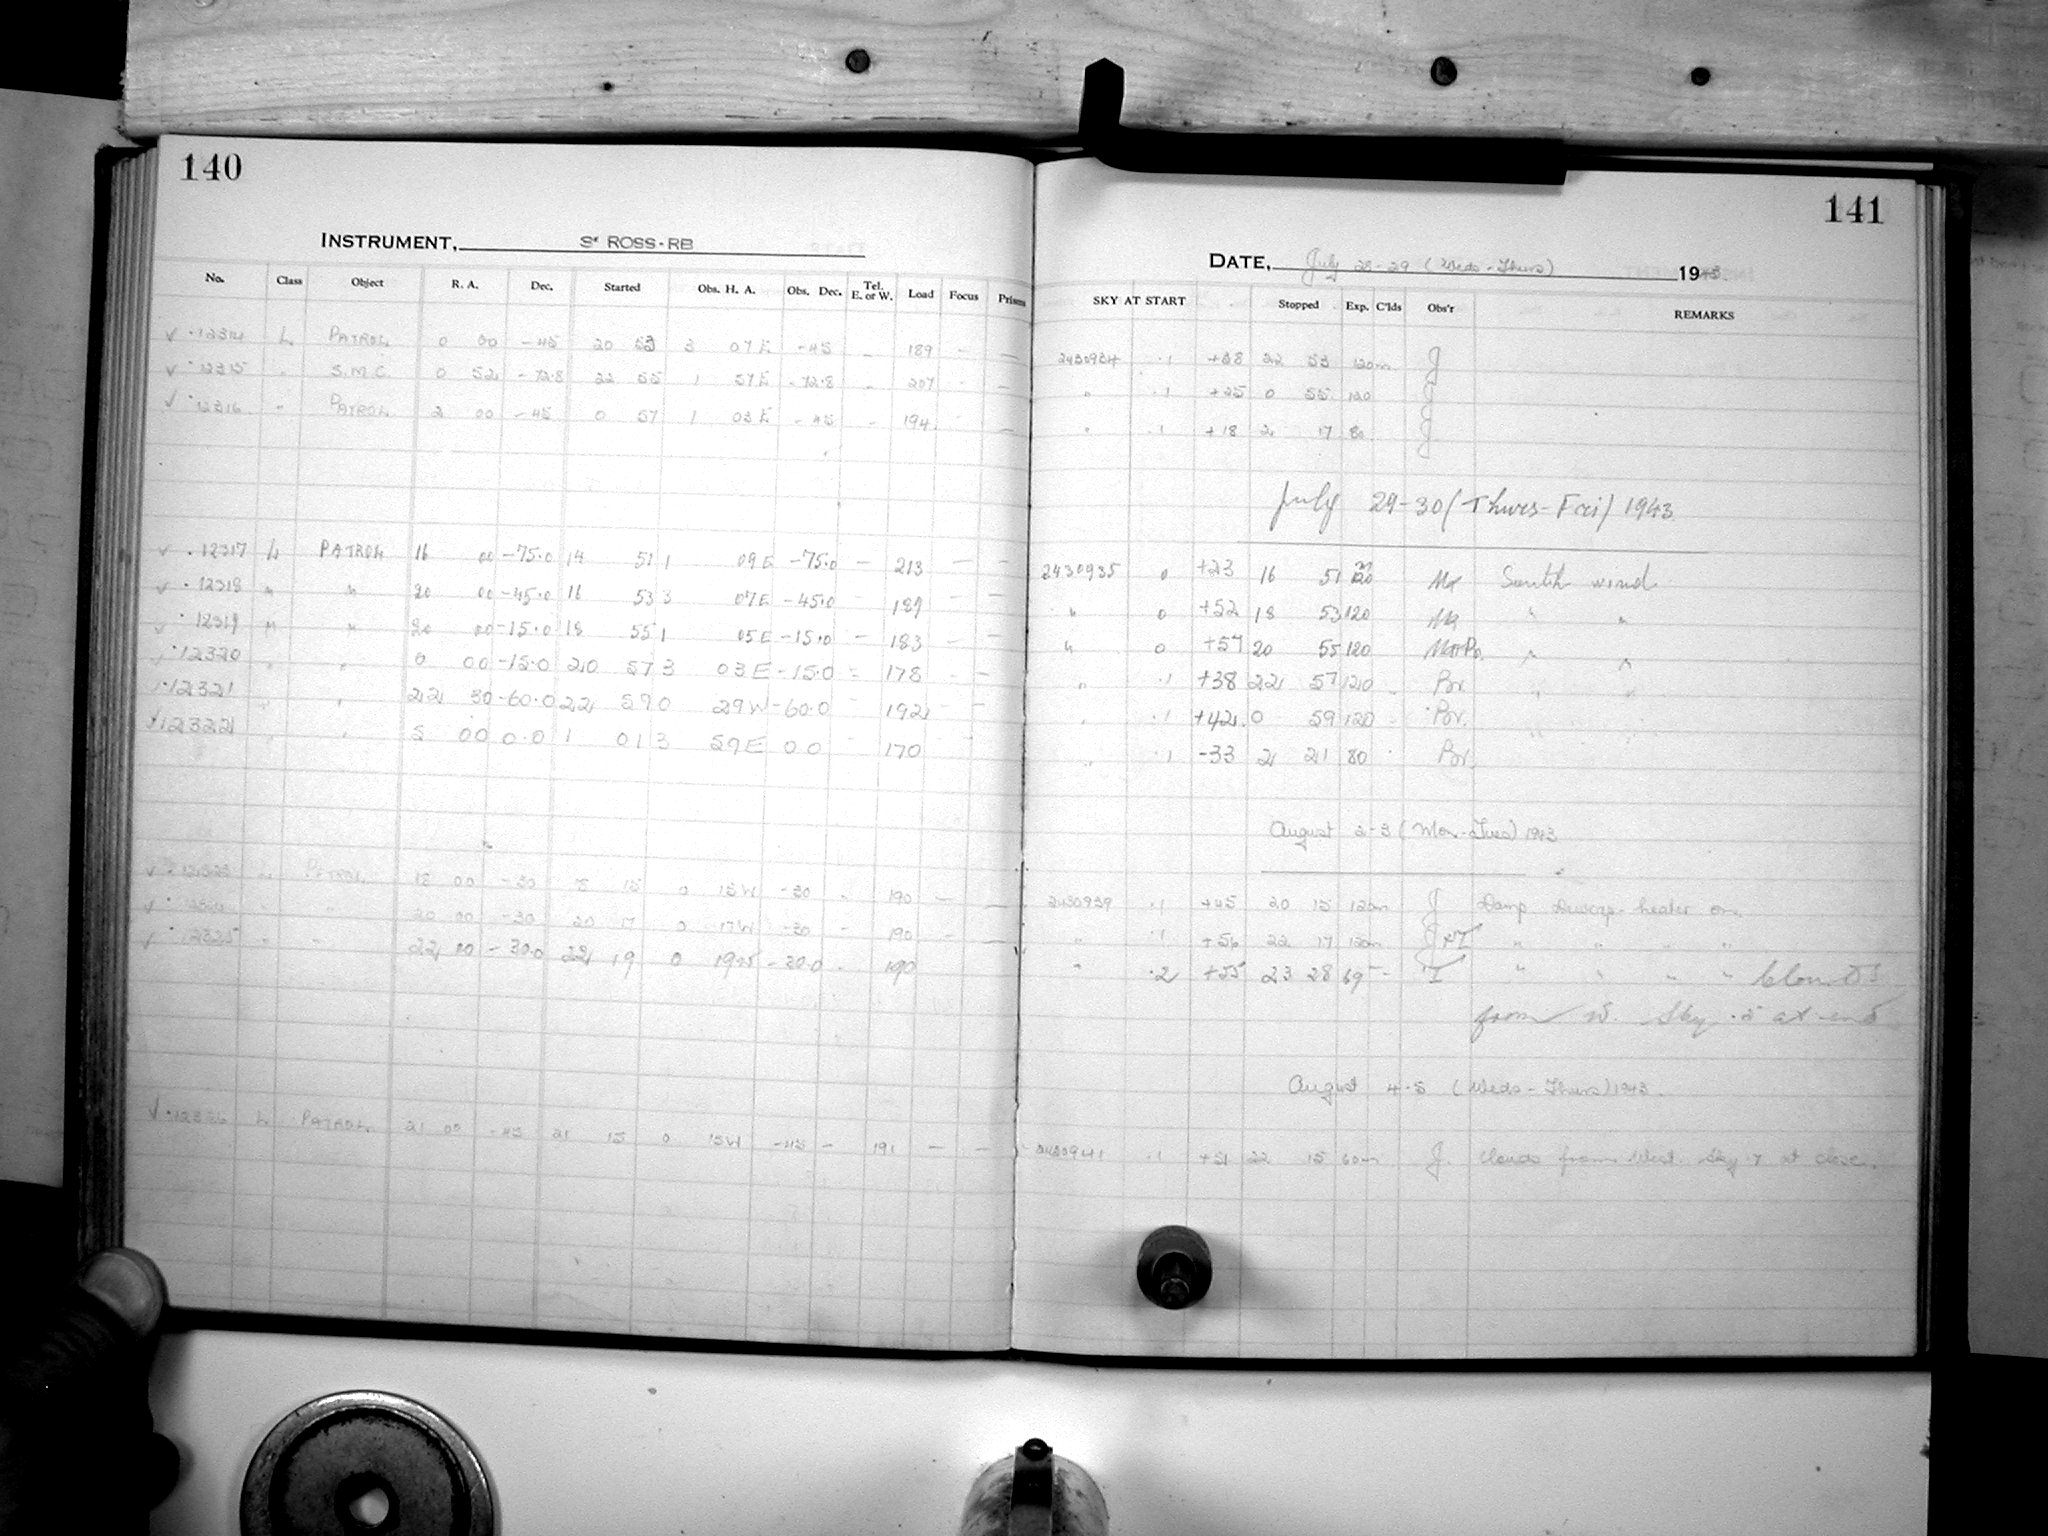 140
INSTRUMENT, ROSS-RB
No. Class Object R. A. Dec. Started Obs. H. A. Obs. Dec. Tel. E. or W. Load Focus Prism
✓ ·12314 L PATROL 0 00 -45 20 53 3 07E -45 - 189 - -
✓ ·12315 " S.M.C 0 52 -72.8 22 55 1 57E -72.8 - 207 - -
✓ ·12316 " PATROL 2 00 -45 0 57 1 03E -45 - 194 -
✓ ·12317 L PATROL 16 00 -75.0 14 51 1 09E -75.0 - 213 - -
✓ ·12318 " " 20 00 -45.0 16 53 3 07E -45.0 - 189 - -
✓ ·12319 " " 20 00 -15.0 18 55 1 05E -15.0 - 183 - -
✓ ·12320 " " 0 00 -15.0 20 57 3 03E -15.0 - 178 - -
✓ ·12321 " " 22 30 -60.0 22 59 0 29W -60.0 - 192 - -
✓ ·12322 " " 5 00 0.0 1 01 3 59E 0 0 - 170 - -
✓ ·12323 L PATROL 18 00 -30 18 15 0 15W -30 - 190 - -
✓ " " 20 00 -30 20 17 0 17W -30 - 190 - -
✓ ·12325 " " 22 00 -30.0 22 19 0 19W -30.0 - 190
✓ ·12326 L PATROL 21 00 -45 21 15 0 15W -45 - 191 - -
141
DATE, July 28-29 (Weds-Thurs) 1943.
SKY AT START Stopped Exp. C'lds Obs'r REMARKS
2430934 .1 +38 22 53 120m J
" .1 +25 0 55 120 J
" .1 +18 2 17 80 J
July 29-30 (Thurs-Fri) 1943
2430935 0 +23 16 51 South wind
" 0 +52 18 53 120 " "
" 0 +57 20 55 120 " "
" .1 +38 22 57 120 Br. " "
" .1 +42 0 59 120 Br. " "
" .1 -33 2 21 80 Br.
August 2-3 (Mon-Tues) 1943
2430939 .1 +45 20 15 120m J Damp. Dewcap heater on.
" .1 +56 22 17 120m " " " "
" .2 +55 23 28 69 " " " " Clouds
from W. Sky .5 at end
August 4-5 (Weds-Thurs) 1943.
2430941 .1 +51 22 15 60m J. Clouds from West. Sky 7 at close.